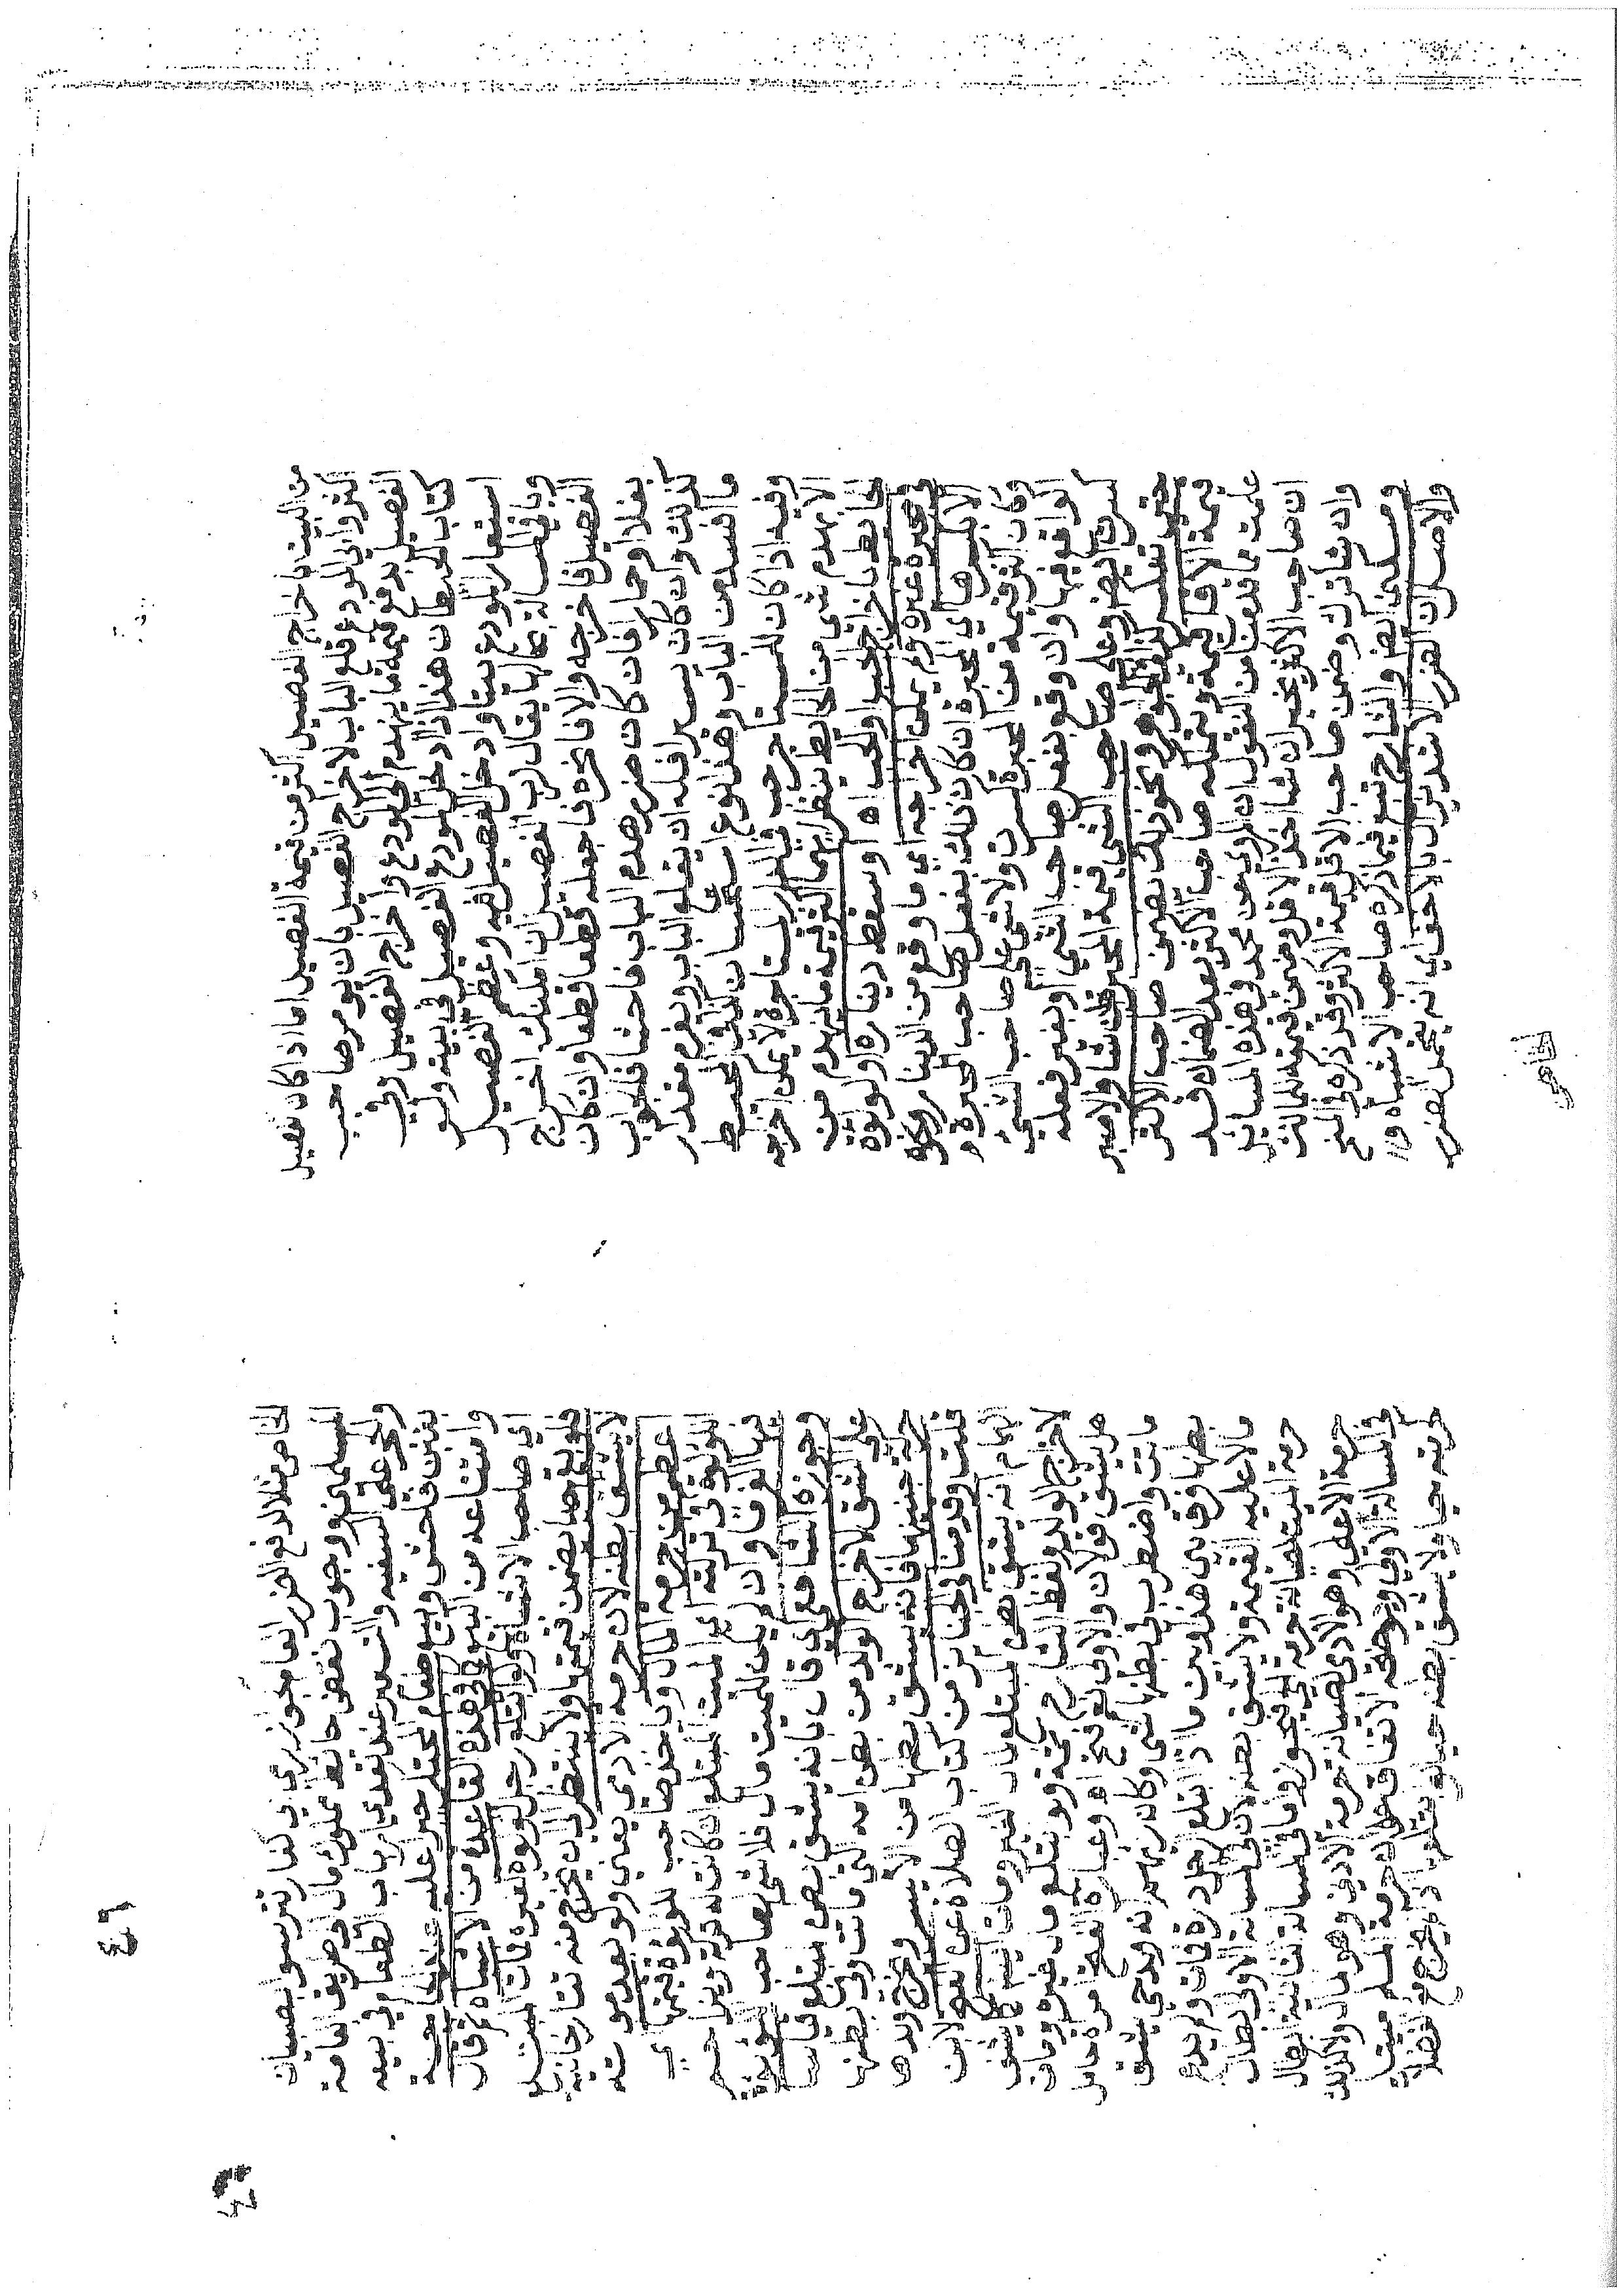 من البيت باخراج الفصيل اكثر من قيمة الفصيل اما اذا كان قيمة الفصيل
اكثر وابى المودع قلع الباب لاخراج الفصيل بان يومر صاحب
الفصيل بدفع قيمة ما ينهدم الى المودع واخراج الفصيل وفي
كتاب الحيطان هذا اذا ادخل المودع الفصيل في بيته ولو
استعار المودع بيتا وادخل الفصيل فيه وعظم الفصيل
وباقي المسالة بحالها يقال لرب الفصيل ان امكنك اخراج
الفصيل فاخرجه والا فانحره فاجعله قطعا قطعا وان كان
بغلا او حمارا فان كان ضرر هدم الباب فاحشا فالجواب
كذلك وان كان يسيرا فله ان يقلع الباب ويغرم مقدار
ما افسد من الباب وهذا نوع استحسان انتهى المحيط
وفيه اذا كان للمستاجر حب في الدار المستاجرة لا يمكن اخراجه
الا بهدم شيء من الحائط ينظر ايهما اكثر قيمة ما ينهدم من
الحائط باخراج الحب او الحب اه او سقط ديناره او لولوة
في محبرة غيره ولم يمكن اخراجه اي ما وقع من الدينار ونحوه
الا بكسرها اي المحبرة ان كان ذلك بفعل صاحب المحبرة و
وكان اكثر قيمة من المحبرة كسرت ولا شيء على صاحب الشيء
الواقع فيها وان وقع بفعل صاحب الشيء او بغير فعله
كسرت ايضا وعلى صاحب الشيء قيمة المحبرة ان شا والا صبر
حتى تنكسر ونحو ذلك يضمن صاحب الاكثر
قيمة الاقل قيمة ويتملكه صاحب الاكثر بعد الضمان وقد
علمت ما قدمنا من النقول ان المروي عن محمد في هذه المسايل
ان صاحب الاكثر يخير ان شا اخذ الاقل وضمن قيمته لمالكه
وان شا ترك وضمن صاحب الاقل قيمة الاكثر وقد ذكره في المنح
ومسكين ايضا والشارح تبع فيما ذكره صاحب الاشباه وا
والاصل ان الضرر الاشد يزال بالاخف اي انه يتحمل الضرر
الخاص
الخاص مثلا لدفع الضرر العام كجواز رمي كفار تترسوا بصبيان
المسلمين ووجوب نقض حائط مملوك مال الى طريق العامة
والحجر على السفيه والتسعير عند تعدي ارباب الطعام في بيعه
بغبن فاحش وبيع طعام المحتكر جبرا عليه عند الحاجة
وامتناعه من البيع في هذه القاعدة من الاشباه ثم قال
اي صاحب الاشباه ولو ابتلع رجل لولوة لغيره فمات المبتلع
فلو بقي حيا يضمن قيمتها ولا ينتظر الى ان يخرج منه تتارخانية
لا يشق بطنه لان حرمة الآدمي يعني ولو بعد موته
اعظم من حرمة المال وياخذ صاحب اللولوة قيمتها اي
اللولوة من تركته اي الميت المبتلع ان كانت له تركة زيد احسم
فيها اتفاقا وان لم يكن للميت مال فلا شيء لصاحب اللولوة
وجوزه الشافعي اي قال بانه يشق بطن مبتلع قياسا
على الشق لاخراج الولد من بطن امه التي ماتت وفي بطنها
حركة جنينها فانه يشق بطنها من الايسر ويخرج ولدها
قلت وقدمنا في الجنائز من كتاب الصلاة عن الفتح لابن
الهمام انه يشق بطن المبتلع مال الغير ومات ايضا كما يشق
لاخراج الولد ولفظ الشارح ثمة ولو ابتلع مال غيره ومات
هل يشق قولان والاولى نعم فتح اه وعبارة الفتح امراة حامل
ماتت واضطرب في بطنها شيء وكان رايهم انه ولد حي يشق
بطنها فرق بين هذا وبين ما اذا ابتلع الرجل درة فمات ولم يدع
مالا عليه القيمة ولا يشق بطنه لان في المسالة الاولى ابطال
حرمة الميت لصيانة حرمة الحي فيجوز واما في المسالة الثانية ابطال
حرمة الاعلى وهو الآدمي لصيانة حرمة الادنى وهو المال ولا كذلك
في المسالة الاولى وتوضيحه الاتفاق على ان حرمة المسلم ميتا
كحرمته حيا ولا يشق بطنه حيا لو ابتلعها اذا لم يخرج مع الفضلات
٤٦